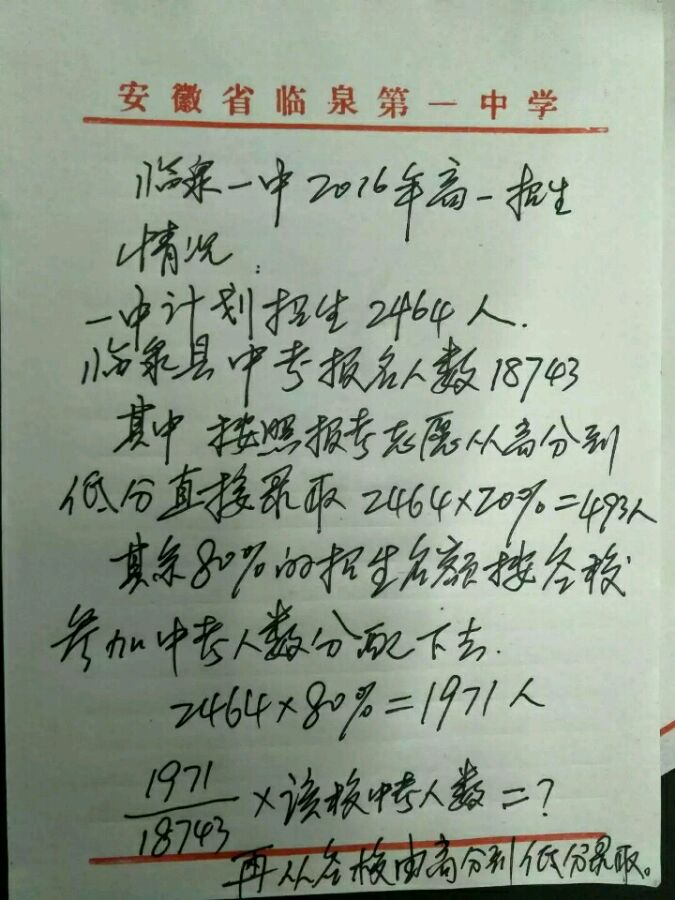 安徽省临泉第一中学
临泉一中2016年高一招生
情况:
一中计划招生2464人.
临泉县中考报名人数18743
其中按照报考志愿从高分到
低分直接录取2464×20%=493人
其余80%的招生名额按各校
参加中考人数分配下去.
2464×80%=1971人
1971/18743×该校中考人数=?
再从各校由高分到低分录取。